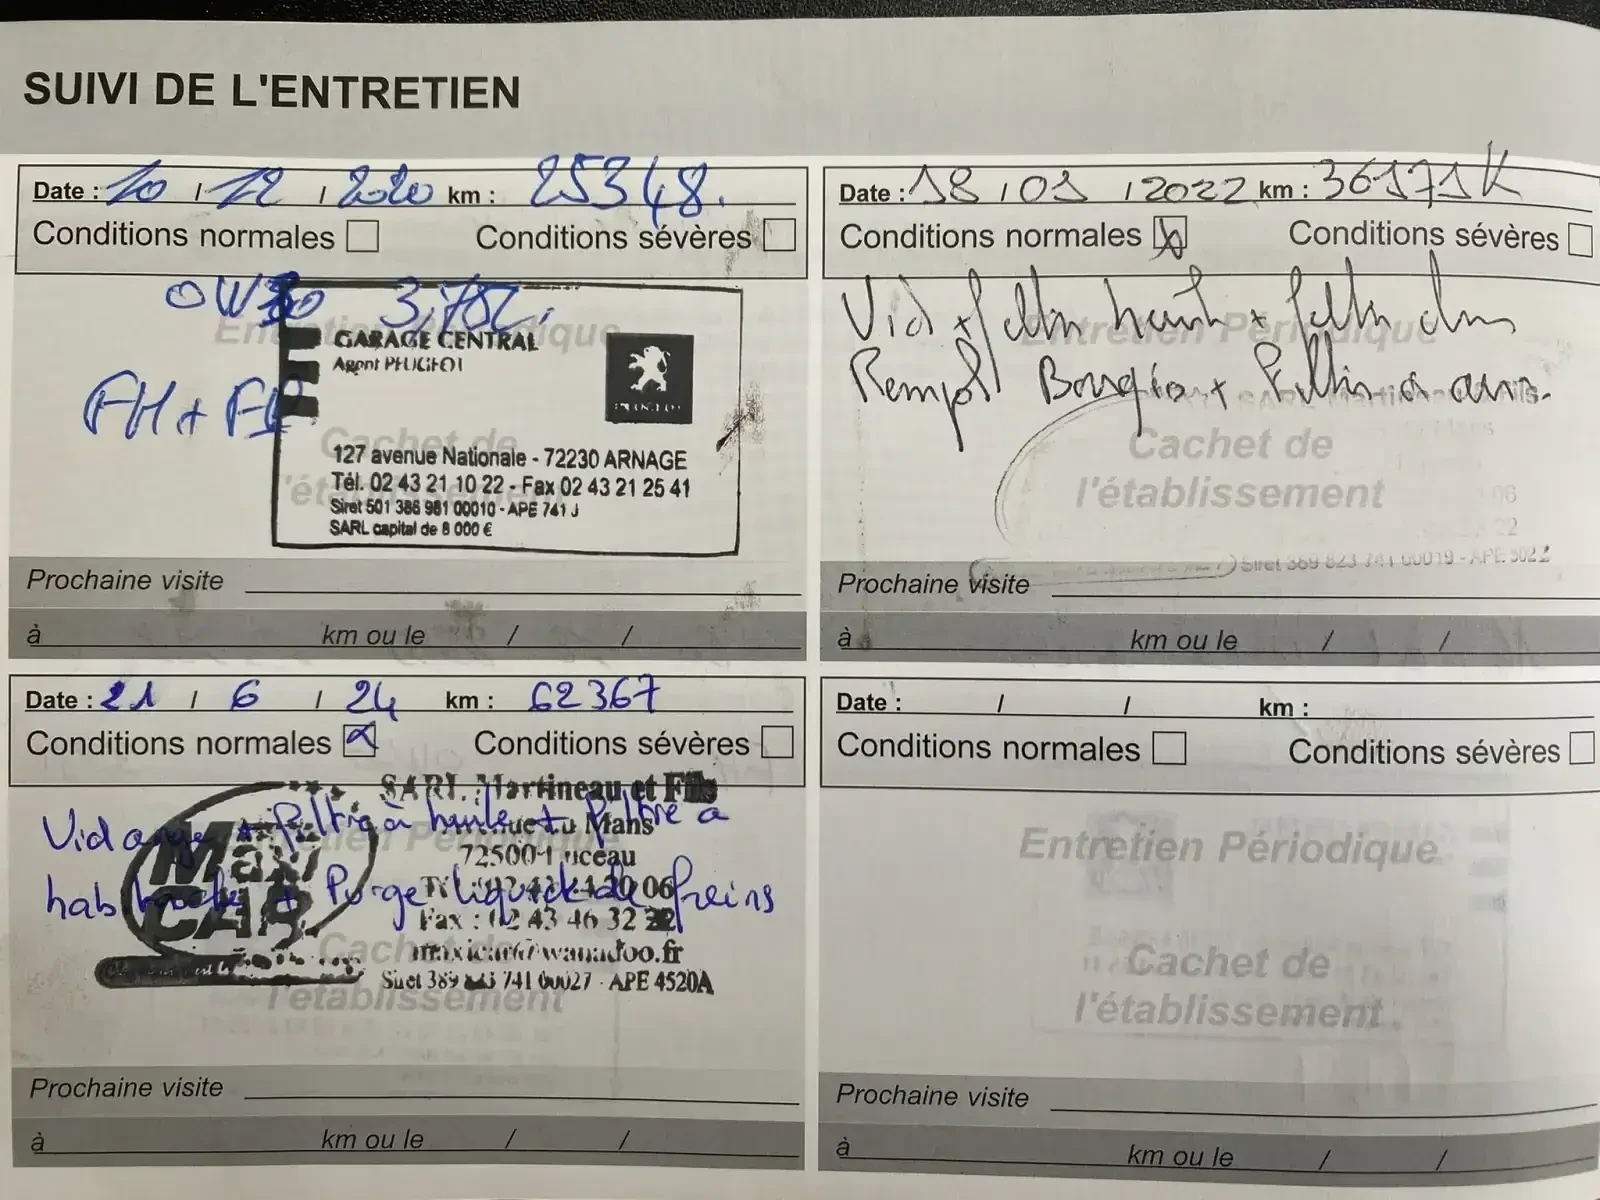 SUIVI DE L'ENTRETIEN
Date : 10 / 12 / 2020 km : 25348.
Conditions normales Conditions sévères
0W30 3,75L.
Entretien Périodique
GARAGE CENTRAL
Agent PEUGEOT
PEUGEOT
FH + FP
Cachet de
l'établissement
127 avenue Nationale - 72230 ARNAGE
Tél. 02 43 21 10 22 - Fax 02 43 21 25 41
Siret 501 386 981 00010 - APE 741 J
SARL capital de 8 000 €
Prochaine visite
à km ou le / /
Date : 18 / 01 / 2022 km : 36171K
Conditions normales Conditions sévères
Vid + filtre huile + filtre
Entretien Périodique
Rempl Bougies + Filtre a air.
Cachet de
l'établissement
Siret 389 823 741 00019 - APE 502Z
Prochaine visite
à km ou le / /
Date : 21 / 6 / 24 km : 62367
Conditions normales Conditions sévères
SARL Martineau et Fils
Vidange + filtre à huile + filtre a
Entretien Périodique
Avenue du Mans
72500 Luceau
habitacle + Purge liquide de freins
Maxi
CAR
Fax : 02 43 46 32 22
maxicar@wanadoo.fr
Siret 389 823 741 00027 - APE 4520A
Cachet de
l'établissement
Prochaine visite
à km ou le / /
Date : / / km :
Conditions normales Conditions sévères
Entretien Périodique
Cachet de
l'établissement
Prochaine visite
à km ou le / /